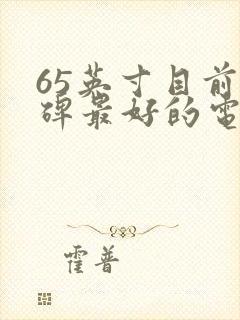 65英寸目前
碑最好的電
霍普